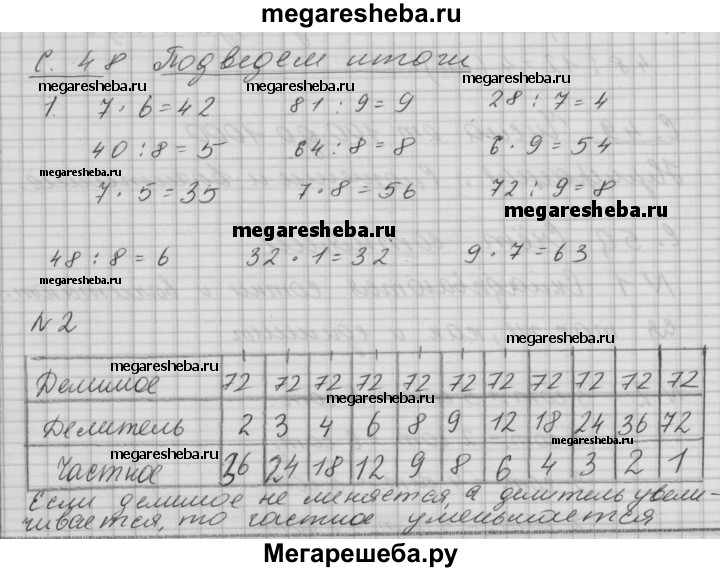 megaresheba.ru
С. 48 Подведем итоги
megaresheba.ru megaresheba.ru megaresheba.ru
1. 7 · 6 = 42 81 : 9 = 9 28 : 7 = 4
40 : 8 = 5 64 : 8 = 8 6 · 9 = 54
megaresheba.ru
7 · 5 = 35 7 · 8 = 56 72 : 9 = 8
megaresheba.ru
megaresheba.ru
48 : 8 = 6 32 · 1 = 32 9 · 7 = 63
megaresheba.ru megaresheba.ru
N 2
megaresheba.ru megaresheba.ru
Делимое 72 72 72 72 72 72 72 72 72 72 72
megaresheba.ru
Делитель 2 3 4 6 8 9 12 18 24 36 72
megaresheba.ru megaresheba.ru
Частное 36 24 18 12 9 8 6 4 3 2 1
Если делимое не меняется, а делитель увели-
чивается, то частное уменьшается
Мегарешеба.ру